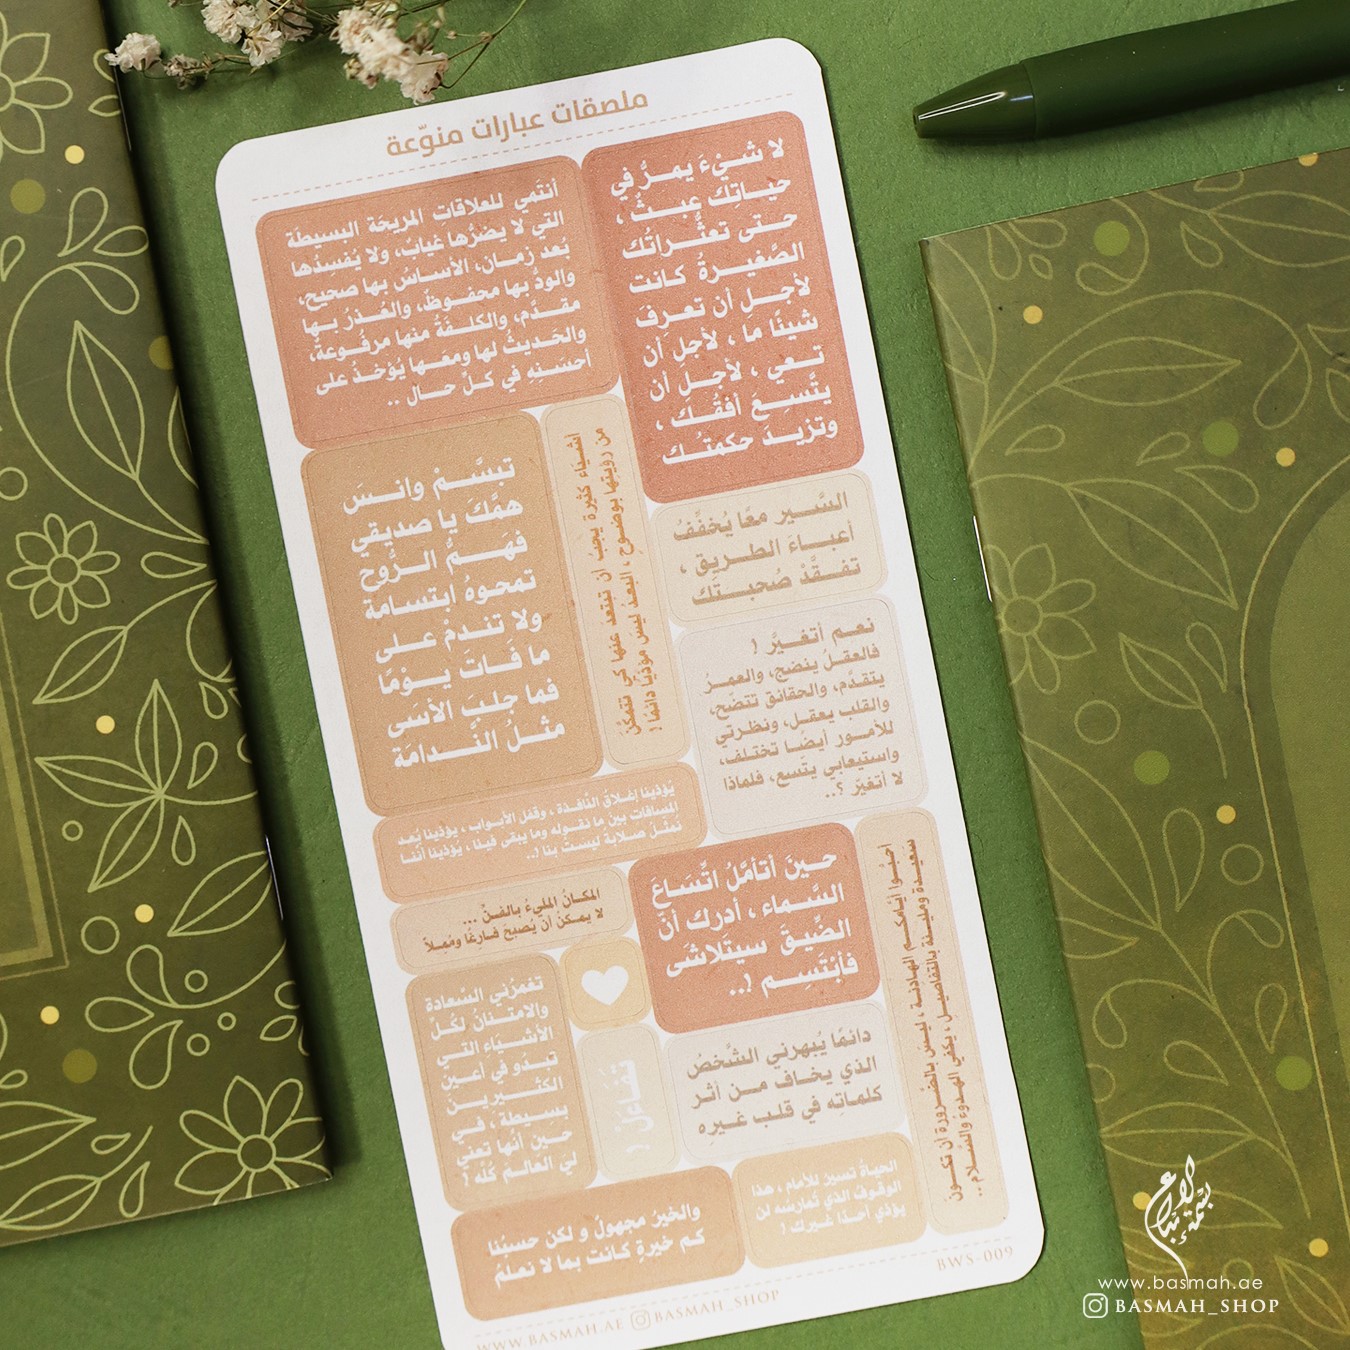 ملصقات عبارات منوّعة
لا شيْءَ يمرُّ في
حياتِك عبثٌ ،
حتى تعثُّراتُك
الصَّغيرةُ كانت
لأجلِ أن تعرفَ
شيئًا ما ، لأجلِ أن
تعي ، لأجلِ أن
يتَّسِعَ أفقُك ،
وتزيدَ حكمتُك
أنتَمي للعلاقاتِ المريحَة البسيطَة
التي لا يضرُّها غيابٌ، ولا يُفسدُها
بُعد زمان، الأساسُ بها صحيح،
والودُّ بها محفوظٌ، والعُذرُ بها
مقدَّم، والكلفَةُ منها مرفُوعة،
والحَديثُ لها ومعَها يُؤخذُ على
أحسَنِهِ في كلِّ حال ..
تبسَّمْ وانسَ
همَّكَ يا صديقي
فهَمُّ الرُّوح
تمحوهُ ابتسامَة
ولا تندمْ على
ما فَاتَ يوْمًا
فما جلبَ الأسَى
مثلُ النَّدامَة
أشياء كثيرة يجبُ أن تبتعد عنها كي تتمكَّن
من رؤيتها بوضوح ، البعدُ ليس مؤذيًا دائمًا !
السَّير معًا يُخفِّفُ
أعباءَ الطريق ،
تفقَّدْ صُحبتَك
نعم أتغيَّر !
فالعقلُ ينضج، والعمرُ
يتقدَّم، والحقائق تتضّح،
والقلب يعقل، ونظرتي
للأمور أيضًا تختلف،
واستيعابي يتَّسع، فلماذا
لا أتغيّر ؟..
يُؤذينا إغلاقُ النَّافذة ، وقفل الأبواب ، يؤذينا بُعد
المسافات بينَ ما نقوله وما يبقى فينا ، يُؤذينا أنَّنا
نُمثّلُ صلابةً ليست بنا !..
المكانُ المليءُ بالفنِّ ...
لا يمكنُ أن يُصبحَ فارغًا ومُملاً
حينَ أتأمَّلُ اتِّسَاعَ
السَّماء ، أدركَ أنَّ
الضِّيقَ سيتَلاشَى
فأبْتَسِم !..
أحبُّوا أيَّامكم الهادئة ، ليسَ بالضَّرورة أن تكون
سعيدة ومليئة بالتفاصيل ، يكفي الهدوءُ والسَّلام ..
تغمرُني السَّعادة
والامتنانُ لكُلِّ
الأشيَاء التي
تبدُو في أعين
الكثيرينَ
بسيطَة ، في
حين أنها تعني
ليَ العالَمَ كلّه !
تفاءل !
دائمًا يُبهرني الشَّخصُ
الذي يخاف من أثر
كلماتِه في قلب غيرِه
الحياةُ تسيرُ للأمام ، هذا
الوقوف الذي تُمارسُه لن
يؤذي أحدًا غيرك !
والخيرُ مجهولٌ و لكن حسبُنا
كم خيرةٍ كانت بما لا نعلمُ
BWS-009
WWW.BASMAH.AE BASMAH_SHOP
بسمة إبداع
www.basmah.ae
BASMAH_SHOP